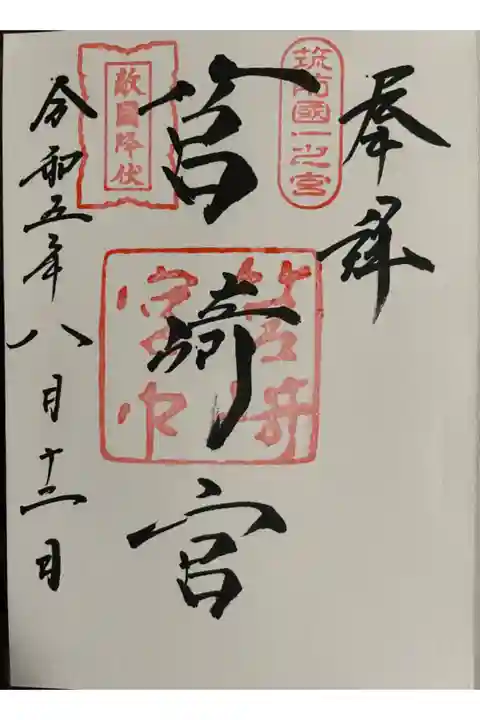 奉拝
筑前國一之宮
筥崎宮
敵國降伏
筥崎宮印
令和五年八月十二日